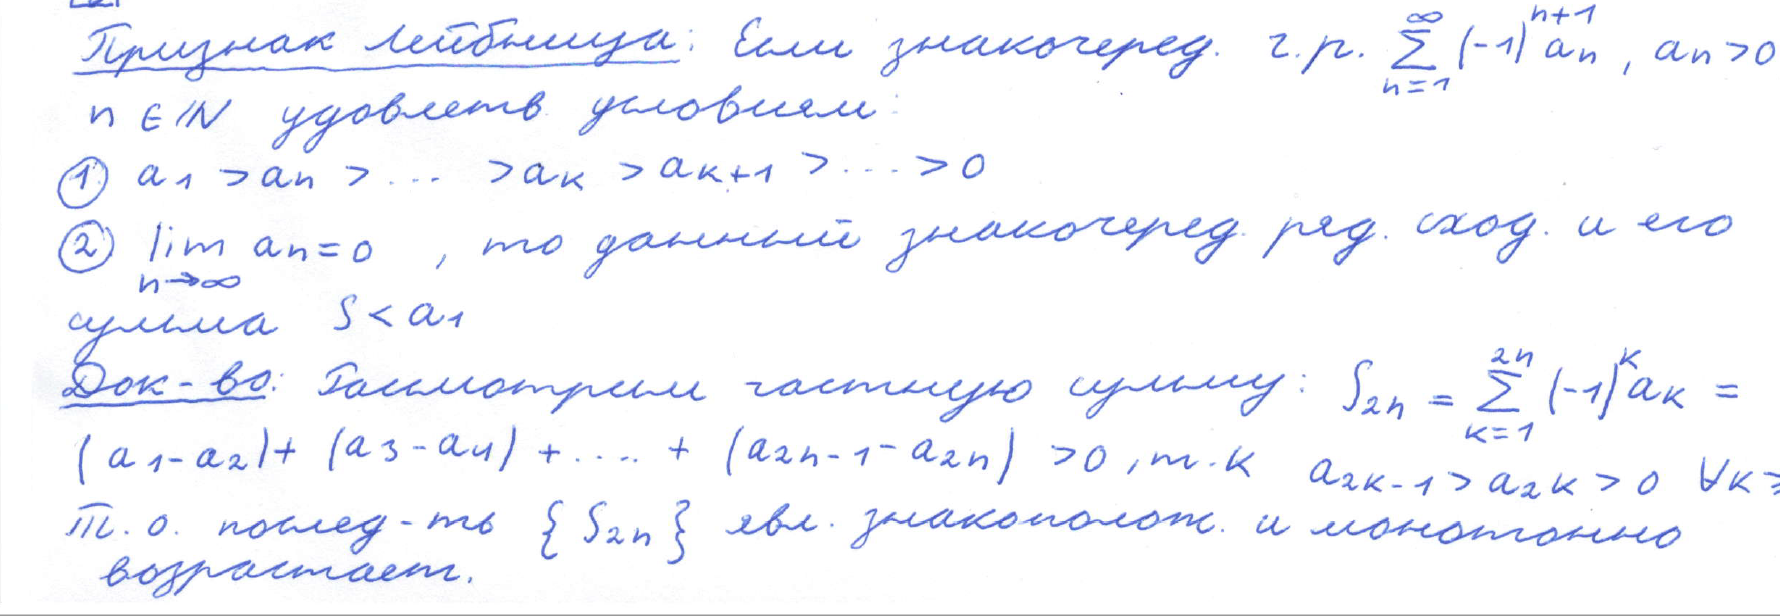 Признак Лейбница: Если знакочеред. ч.р. ∑_{n=1}^{∞} (-1)^{n+1} a_n, a_n>0
n ∈ ℕ удовлетв. условиям:
① a_1 > a_n > ... > a_k > a_{k+1} > ... > 0
② lim_{n→∞} a_n = 0, то данный знакочеред. ряд. сход. и его
сумма S < a_1
Док-во: Рассмотрим частную сумму: S_{2n} = ∑_{k=1}^{2n} (-1)^k a_k =
(a_1-a_2)+ (a_3-a_4) + .... + (a_{2n-1}-a_{2n}) >0, т.к a_{2k-1} > a_{2k} > 0 ∀k≥
Т.о. послед-ть {S_{2n}} явл. знакополож. и монотонно
возрастает.